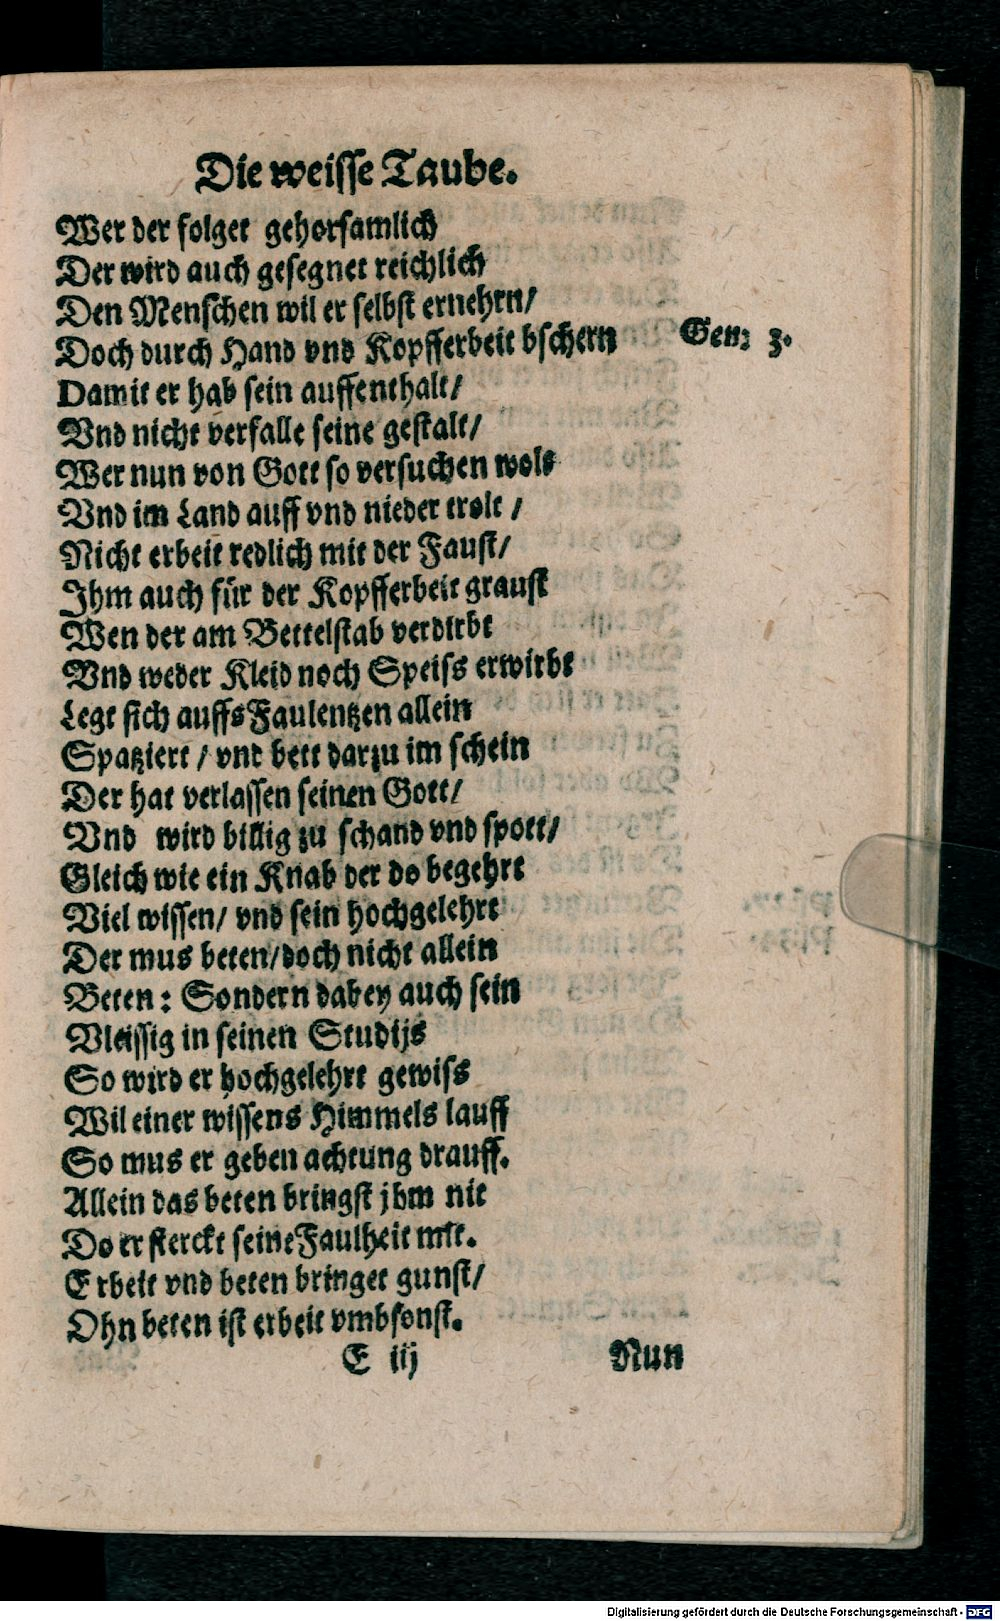 Die weisse Taube.
Wer der folget gehorsamlich
Der wird auch gesegnet reichlich
Den Menschen wil er selbst ernehrn/
Doch durch Hand vnd Kopfferbeit bschern
Gen: 3.
Damit er hab sein auffenthalt/
Vnd nicht verfalle seine gestalt/
Wer nun von Gott so versuchen wolt
Vnd im Land auff vnd nieder trolt /
Nicht erbeit redlich mit der Faust/
Ihm auch für der Kopfferbeit graust
Wen der am Bettelstab verdirbt
Vnd weder Kleid noch Speiss erwirbt
Legt sich auffs Faulentzen allein
Spatziert / vnd bett darzu im schein
Der hat verlassen seinen Gott/
Vnd wird billig zu schand vnd spott/
Gleich wie ein Knab der do begehrt
Viel wissen/ vnd sein hochgelehrt
Der mus beten/doch nicht allein
Beten: Sondern dabey auch sein
Vleissig in seinen Studijs
So wird er hochgelehrt gewiss
Wil einer wissens Himmels lauff
So mus er geben achtung drauff.
Allein das beten bringst jhm nit
Do er sterckt seine Faulheit mit.
Erbeit vnd beten bringet gunst/
Ohn beten ist erbeit vmbsonst.
E iij
Nun
Digitalisierung gefördert durch die Deutsche Forschungsgemeinschaft - DFG